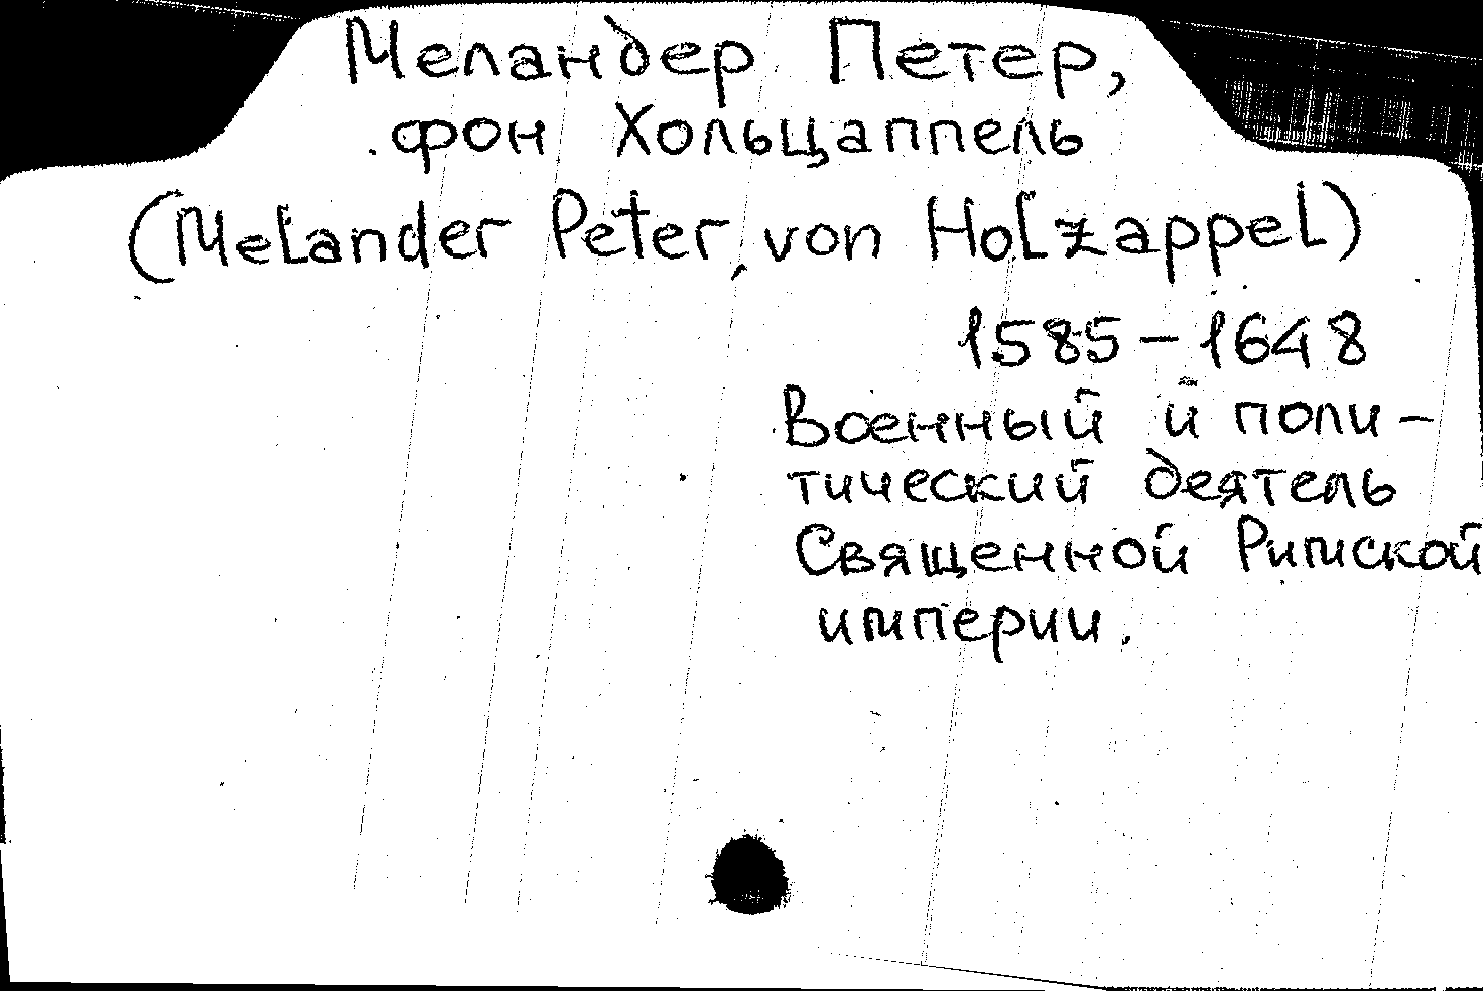 Меландер Петер,
фон Хольцаппель
(Melander Peter, von Holzappel)
1585-1648
Военный и поли-
тический деятель
Священной Римской
империи.